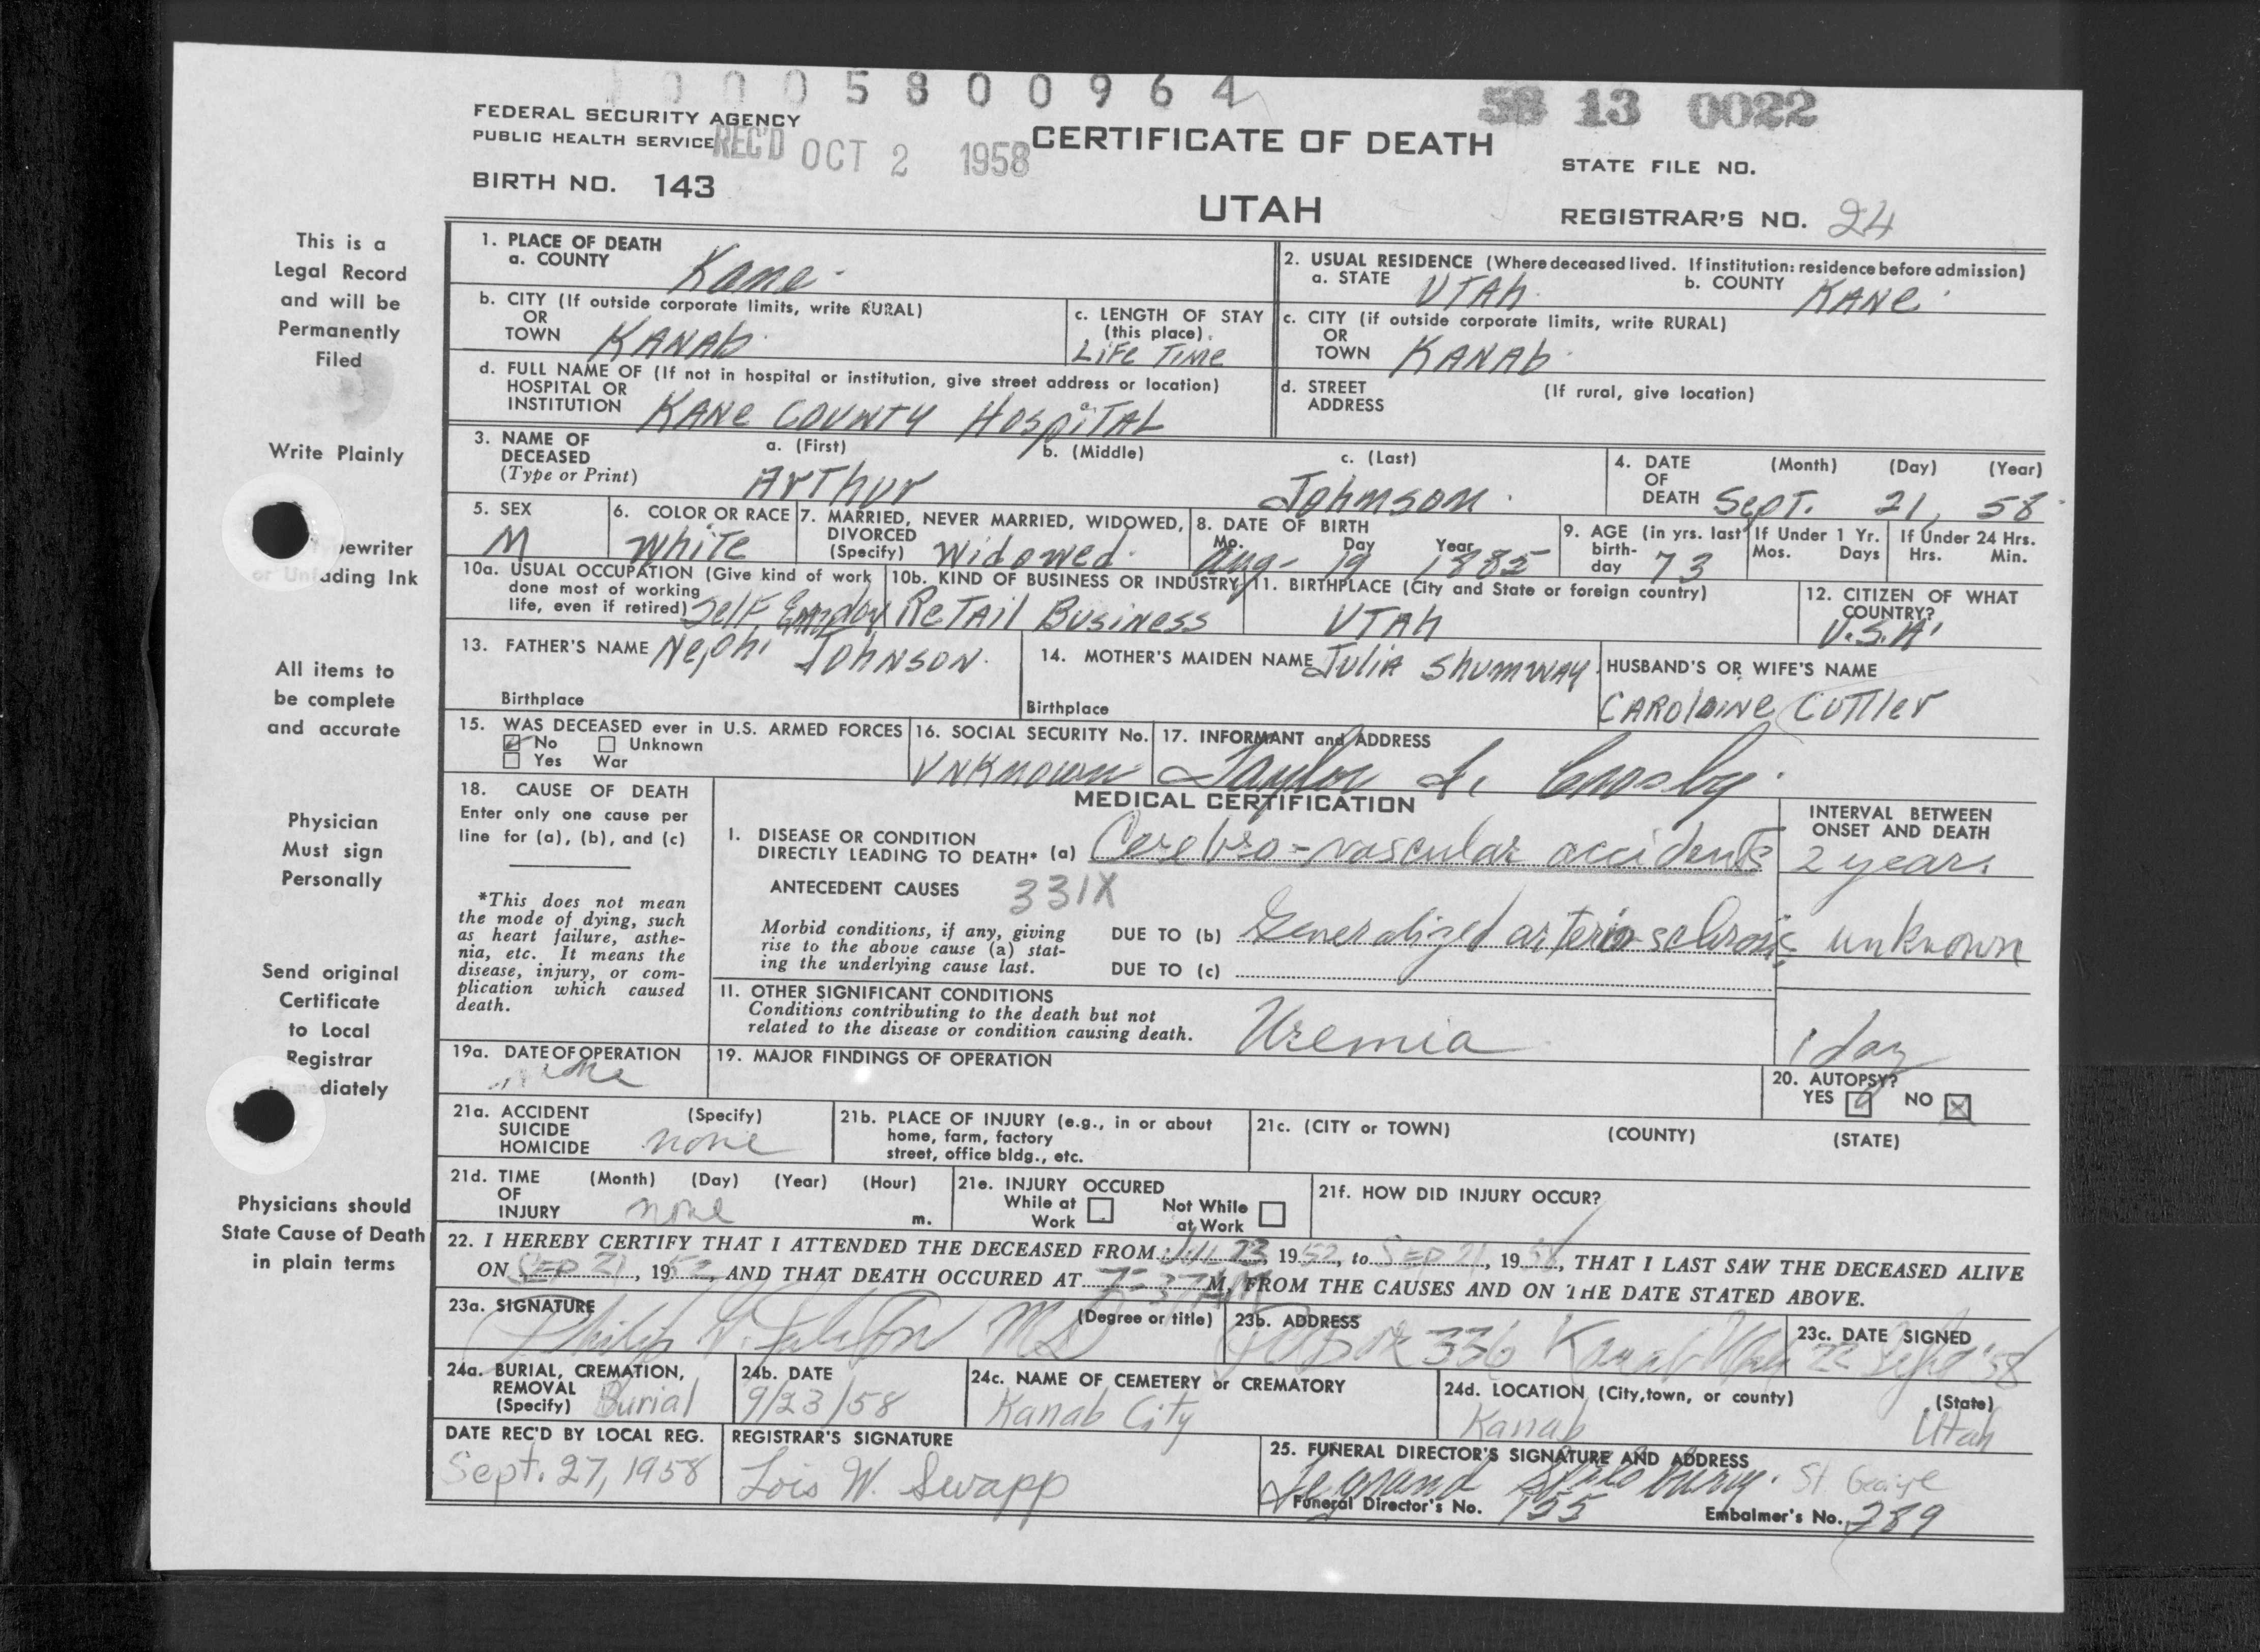 0 0 0 5 8 0 0 9 6 4
58 13 0022
FEDERAL SECURITY AGENCY
PUBLIC HEALTH SERVICE
REC'D OCT 2 1958
CERTIFICATE OF DEATH
STATE FILE NO.
BIRTH NO. 143
UTAH
REGISTRAR'S NO. 24
This is a
Legal Record
and will be
Permanently
Filed
Write Plainly
ewriter
or Unfading Ink
All items to
be complete
and accurate
Physician
Must sign
Personally
Send original
Certificate
to Local
Registrar
diately
Physicians should
State Cause of Death
in plain terms
1. PLACE OF DEATH
a. COUNTY Kane
2. USUAL RESIDENCE (Where deceased lived. If institution: residence before admission)
a. STATE UTAh b. COUNTY KANe
b. CITY (If outside corporate limits, write RURAL)
OR
TOWN KANAb
c. LENGTH OF STAY
(this place)
LiFe Time
c. CITY (if outside corporate limits, write RURAL)
OR
TOWN KANAb
d. FULL NAME OF (If not in hospital or institution, give street address or location)
HOSPITAL OR
INSTITUTION KANe COUNTY HospiTAL
d. STREET (If rural, give location)
ADDRESS
3. NAME OF
DECEASED
(Type or Print)
a. (First) b. (Middle) c. (Last)
ArThur Johnson
4. DATE (Month) (Day) (Year)
OF
DEATH SepT. 21, 58
5. SEX
M
6. COLOR OR RACE
White
7. MARRIED, NEVER MARRIED, WIDOWED,
DIVORCED
(Specify) Widowed
8. DATE OF BIRTH
Mo. Day Year
Aug- 19 1885
9. AGE (in yrs. last
birth-
day 73
If Under 1 Yr.
Mos. Days
If Under 24 Hrs.
Hrs. Min.
10a. USUAL OCCUPATION (Give kind of work
done most of working
life, even if retired) Self Employ
10b. KIND OF BUSINESS OR INDUSTRY
ReTail Business
11. BIRTHPLACE (City and State or foreign country)
UTAh
12. CITIZEN OF WHAT
COUNTRY?
U.S.A
13. FATHER'S NAME Nephi JOhNSON
Birthplace
14. MOTHER'S MAIDEN NAME Julia Shumway
Birthplace
HUSBAND'S OR WIFE'S NAME
CAROlaine Cuttler
15. WAS DECEASED ever in U.S. ARMED FORCES
No Unknown
Yes War
16. SOCIAL SECURITY No.
UNKnown
17. INFORMANT and ADDRESS
Taylor L. Crosby
18. CAUSE OF DEATH
Enter only one cause per
line for (a), (b), and (c)
*This does not mean
the mode of dying, such
as heart failure, asthe-
nia, etc. It means the
disease, injury, or com-
plication which caused
death.
MEDICAL CERTIFICATION
INTERVAL BETWEEN
ONSET AND DEATH
I. DISEASE OR CONDITION
DIRECTLY LEADING TO DEATH* (a) Cerebro-vascular accidents 2 years
ANTECEDENT CAUSES 331X
Morbid conditions, if any, giving
rise to the above cause (a) stat-
ing the underlying cause last.
DUE TO (b) Generalized arterio sclerosis unknown
DUE TO (c)
II. OTHER SIGNIFICANT CONDITIONS
Conditions contributing to the death but not
related to the disease or condition causing death.
Uremia 1 day
19a. DATE OF OPERATION
none
19. MAJOR FINDINGS OF OPERATION
20. AUTOPSY?
YES NO
21a. ACCIDENT (Specify)
SUICIDE
HOMICIDE none
21b. PLACE OF INJURY (e.g., in or about
home, farm, factory
street, office bldg., etc.
21c. (CITY or TOWN) (COUNTY) (STATE)
21d. TIME (Month) (Day) (Year) (Hour)
OF
INJURY none m.
21e. INJURY OCCURED
While at Not While
Work at Work
21f. HOW DID INJURY OCCUR?
22. I HEREBY CERTIFY THAT I ATTENDED THE DECEASED FROM 23, 1952, to Sep 21, 1958, THAT I LAST SAW THE DECEASED ALIVE
ON SEP 21, 19 , AND THAT DEATH OCCURED AT 7:37AM M, FROM THE CAUSES AND ON THE DATE STATED ABOVE.
23a. SIGNATURE (Degree or title)
Philip MD
23b. ADDRESS
336 Kanab Utah
23c. DATE SIGNED
22 Sept '58
24a. BURIAL, CREMATION,
REMOVAL
(Specify) Burial
24b. DATE
9/23/58
24c. NAME OF CEMETERY or CREMATORY
Kanab City
24d. LOCATION (City, town, or county) (State)
Kanab Utah
DATE REC'D BY LOCAL REG.
Sept. 27, 1958
REGISTRAR'S SIGNATURE
Lois W. Swapp
25. FUNERAL DIRECTOR'S SIGNATURE AND ADDRESS
St George
Funeral Director's No. 155 Embalmer's No. 289